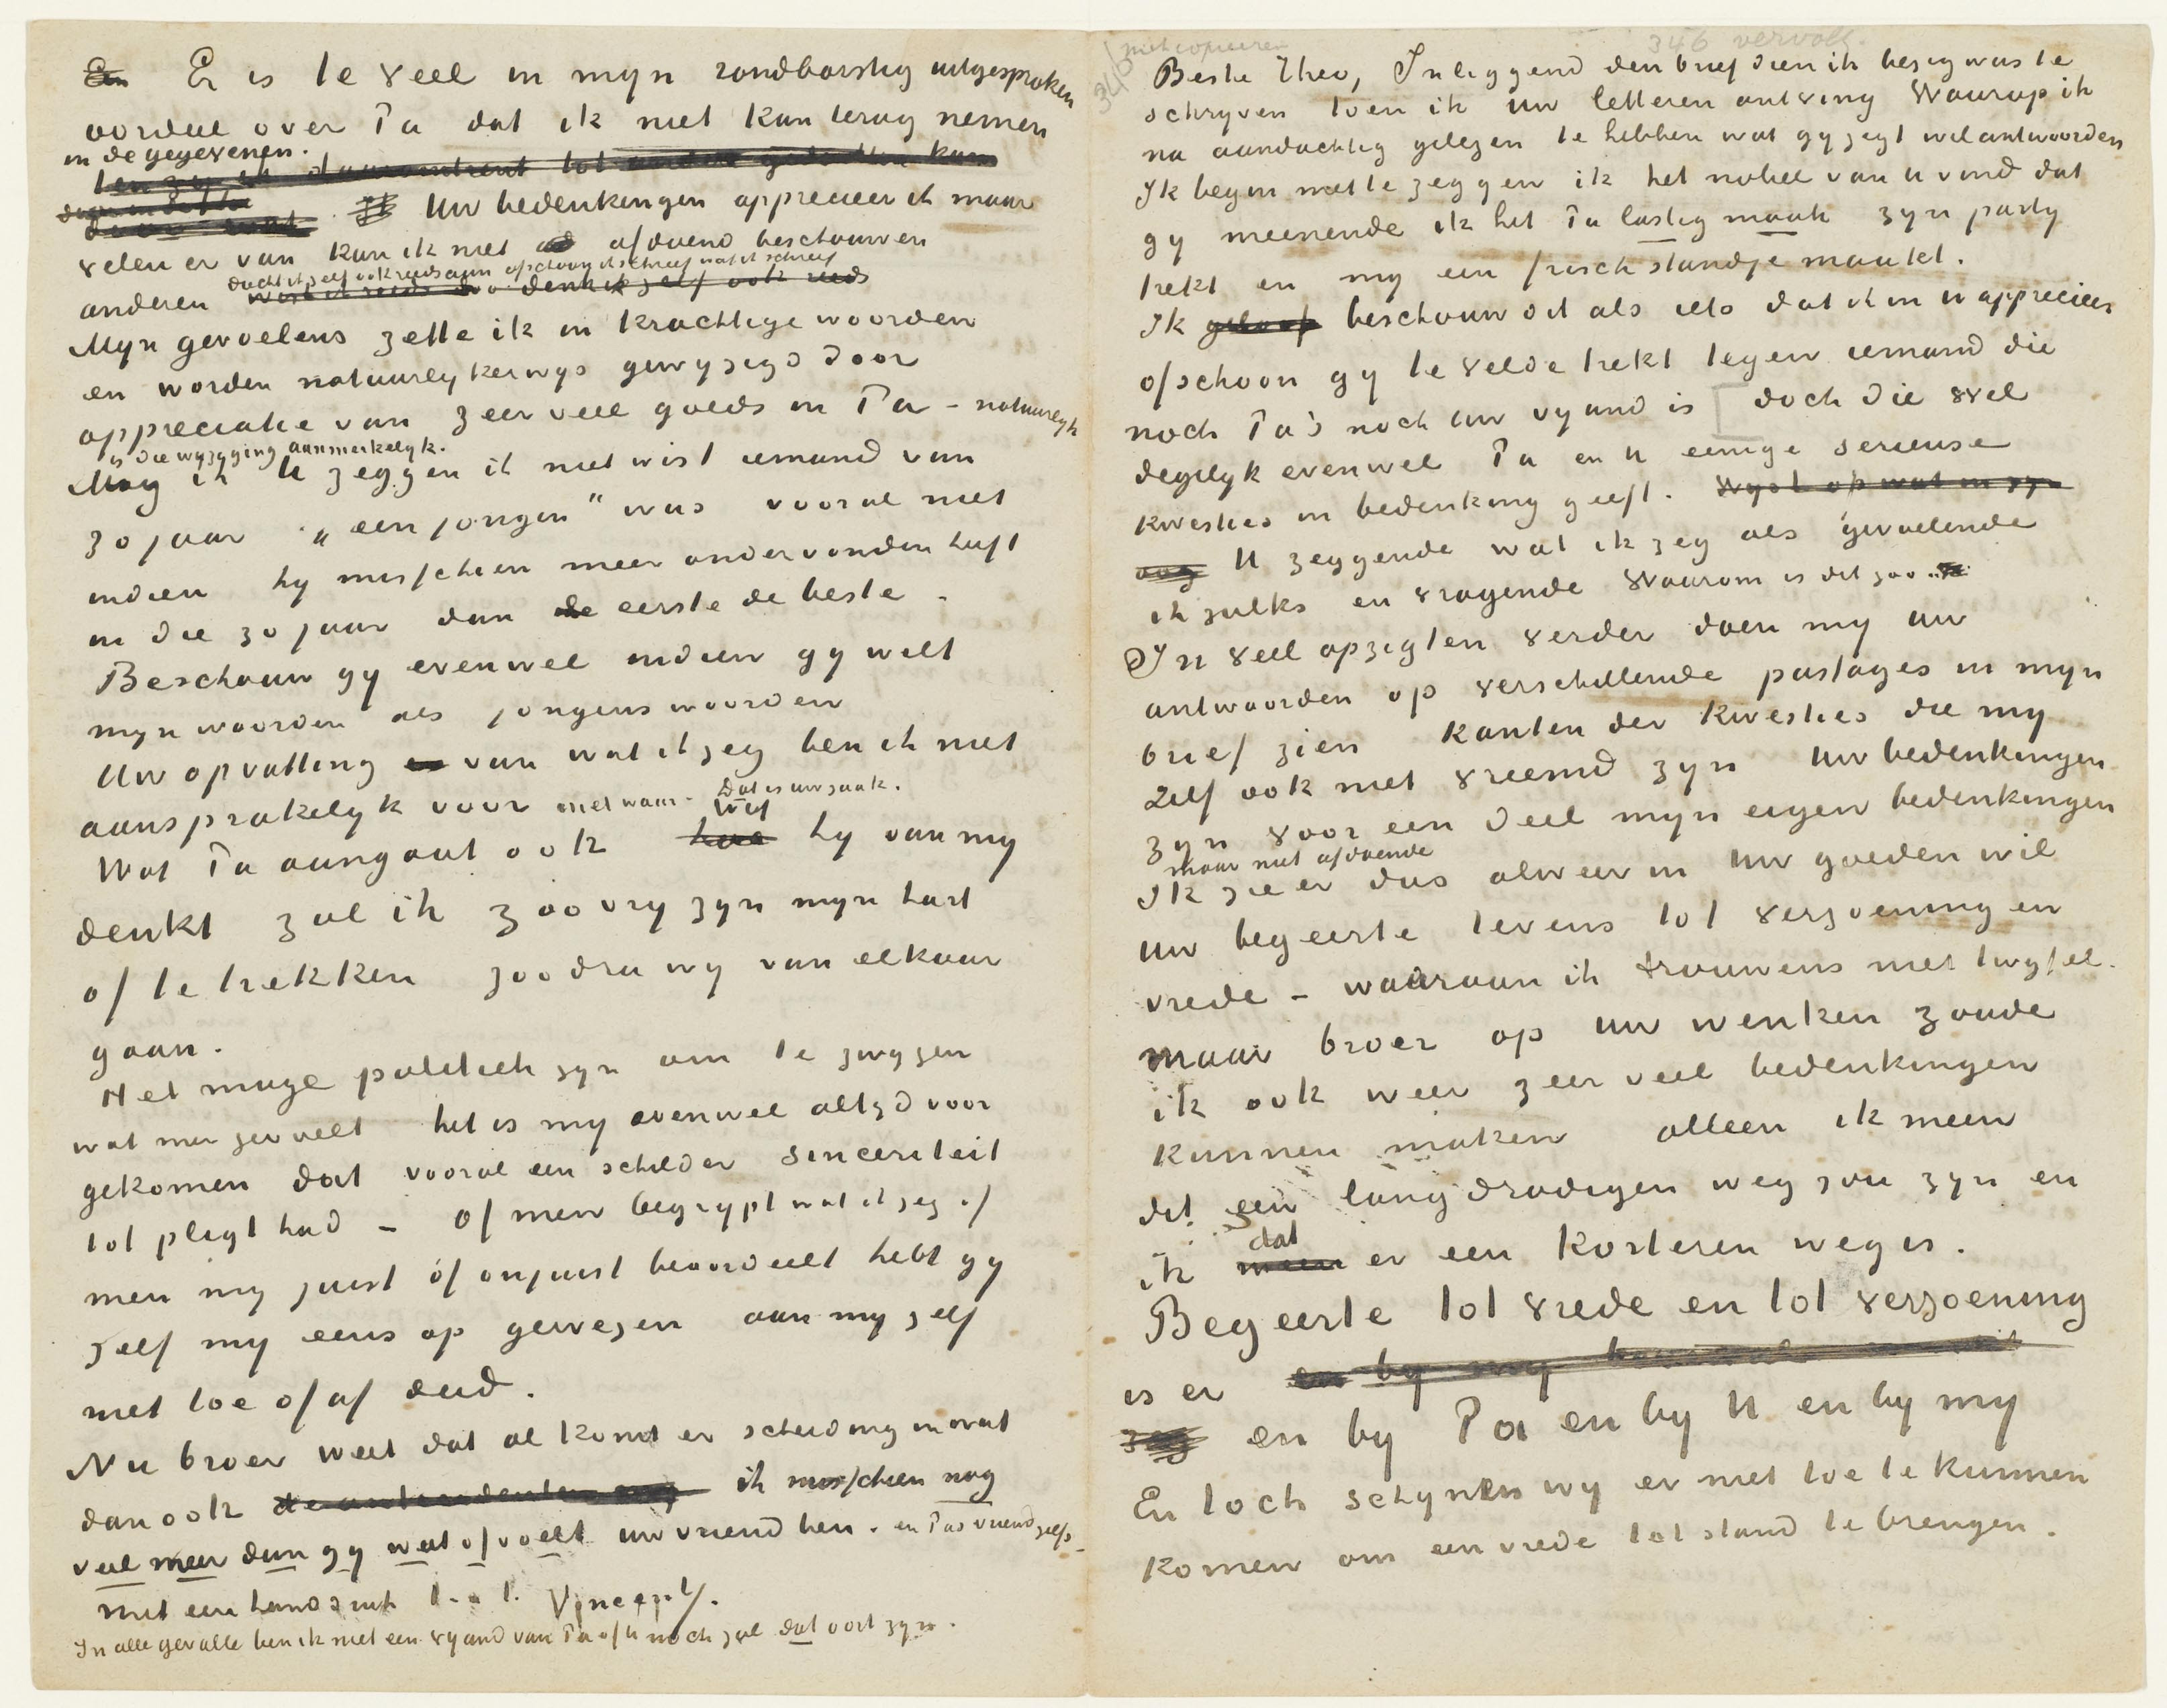 Er is te veel in mijn rondborstig uitgesproken
oordeel over Pa dat ik niet kan terug nemen
in de gegevenen.
ten zij ik daaromtrent tot andere gedachten kom
Uw bedenkingen apprecieer ik maar
velen er van kan ik niet afdoend beschouwen
dacht ik zelf ook reeds aan ofschoon ik schreef wat ik schreef
anderen denk ik zelf ook reeds
Mijn gevoelens zette ik in krachtige woorden
en worden natuurlijkerwijs gewijzigd door
appreciatie van zeer veel goeds in Pa – natuurlijk
is die wijzyging aanmerkelijk.
Mag ik U zeggen ik niet wist iemand van
30 jaar „een jongen” was vooral niet
indien hij misschien meer ondervonden heeft
in die 30 jaar dan de eerste de beste –
Beschouw gij evenwel indien gij wilt
mijn woorden als jongenswoorden
Uw opvatting van wat ik zeg ben ik niet
aansprakelijk voor niet waar – Dat is uw zaak.
wat
Wat Pa aangaat ook hoe hij van mij
denkt zal ik zoo vrij zijn mijn hart
af te trekken zoodra wij van elkaar
gaan.
Het moge politiek zijn om te zwijgen
wat men gevoelt het is mij evenwel altijd voor
gekomen dat vooral een schilder sinceriteit
tot pligt had – of men begrijpt wat ik zeg of
men mij juist óf onjuist beoordeelt hebt gij
zelf mij eens op gewezen aan mij zelf
niet toe of af deed.
Nu broer weet dat al komt er scheiding in wat
dan ook ik misschien nog
veel meer dan gij weet of voelt uw vriend ben. en Pa's vriend zelfs –
Met een handdruk t. à t. Vincent.
In alle gevalle ben ik niet een vijand van Pa of U noch zal dat ooit zijn.
346
niet copieeren
346 vervolg.
Beste Theo, Inliggend den brief dien ik bezig was te
schrijven toen ik uw letteren ontving Waarop ik
na aandachtig gelezen te hebben wat gij zegt wil antwoorden
Ik begin met te zeggen ik het nobel van U vind dat
gij meenende ik het Pa lastig maak zijn partij
trekt en mij een frisch standje maakt.
Ik geloof beschouw dit als iets dat ik in U apprecieer
ofschoon gij te velde trekt tegen iemand die
noch Pa's noch uw vijand is doch die wel
degelijk evenwel Pa en U eenige serieuse
kwesties in bedenking geeft. Wijst op wat in zijn
oog U zeggende wat ik zeg als gevoelende
ik zulks en vragende Waarom is dit zoo..
In veel opzigten verder doen mij uw
antwoorden op verschillende passages in mijn
brief zien kanten der kwesties die mij
zelf ook niet vreemd zijn Uw bedenkingen
zijn voor een deel mijn eigen bedenkingen
maar niet afdoende
Ik zie er dus alweer in Uw goeden wil
uw begeerte tevens tot verzoening en
vrede – waaraan ik trouwens niet twijfel.
maar broer op uw wenken zoude
ik ook weer zeer veel bedenkingen
kunnen maken alleen ik meen
dit een langdradigen weg zou zijn en
dat
ik meen er een korteren weg is.
Begeerte tot vrede en tot verzoening
is er
en bij Pa en bij U en bij mij
En toch schijnen wij er niet toe te kunnen
komen om een vrede tot stand te brengen.